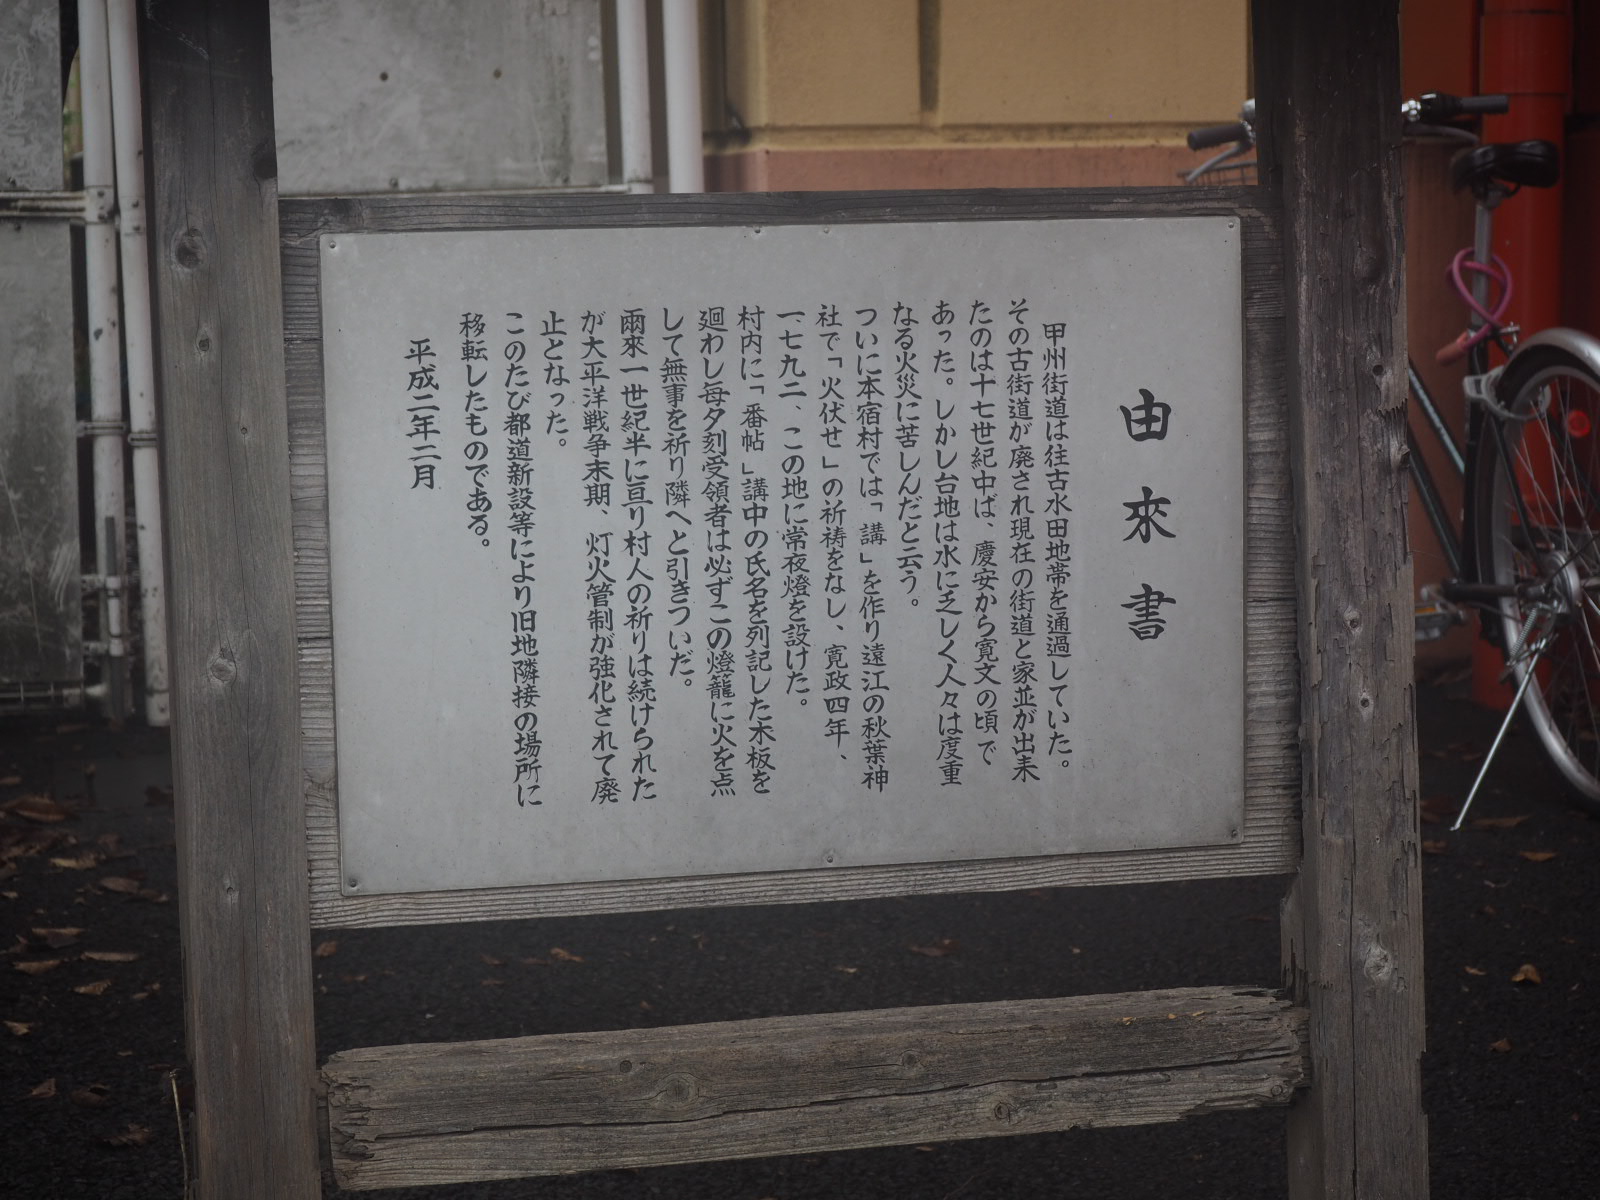 由來書
甲州街道は往古水田地帯を通過していた。
その古街道が廃され現在の街道と家並が出来
たのは十七世紀中ば、慶安から寛文の頃で
あった。しかし台地は水に乏しく人々は度重
なる火災に苦しんだと云う。
ついに本宿村では「講」を作り遠江の秋葉神
社で「火伏せ」の祈祷をなし、寛政四年、
一七九二、この地に常夜燈を設けた。
村内に「番帖」講中の氏名を列記した木板を
廻わし毎夕刻受領者は必ずこの燈籠に火を点
して無事を祈り隣へと引きついだ。
爾來一世紀半に亘り村人の祈りは続けられた
が大平洋戦争末期、灯火管制が強化されて廃
止となった。
このたび都道新設等により旧地隣接の場所に
移転したものである。
平成二年二月